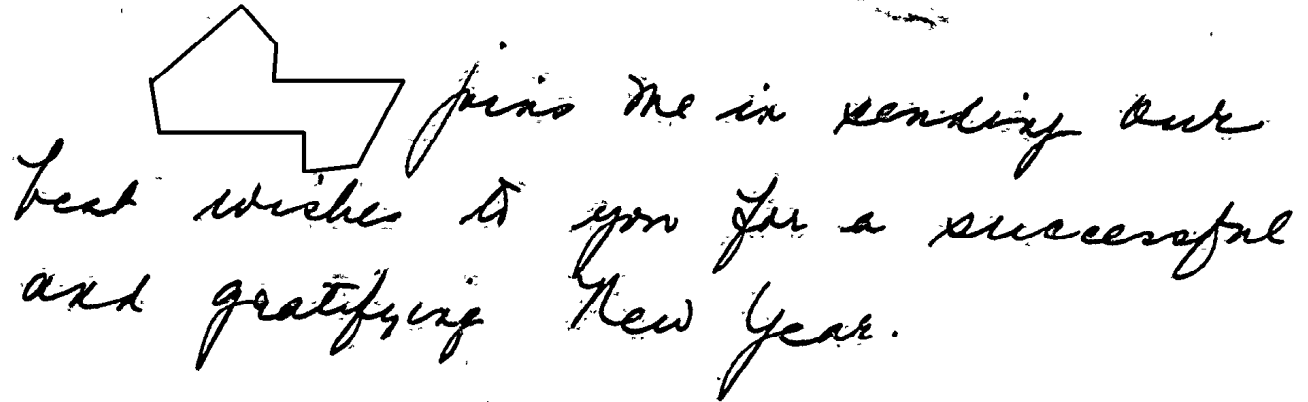 joins me in sending our
best wishes to you for a successful
and gratifying New Year.